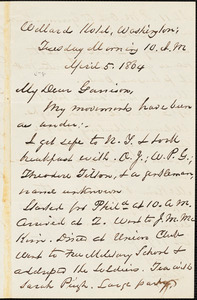 Willards Hotel, Washington,
Tuesday Morning 10. A.M
April 5. 1864
My Dear Garrison,
My movements have been
as under:-
I got safe to N.Y. & took
breakfast with O. J.; W. P. G.;
Theodore Tilton, & a gentleman,
name unknown
Started for Phila at 10. A.M.
Arrived at 2. Went to J. M. McKim
Dined at Union Club
Went to Free Military School &
addressed the Soldiers. Tea with
Sarah Pugh. Large party